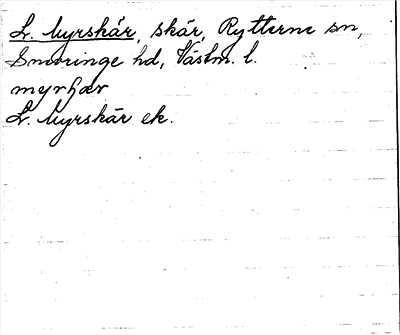 L. Myrskär, skär, Rytterne sn,
Snevringe hd, Västm. l.
myrʃær
L. Myrskär ek.